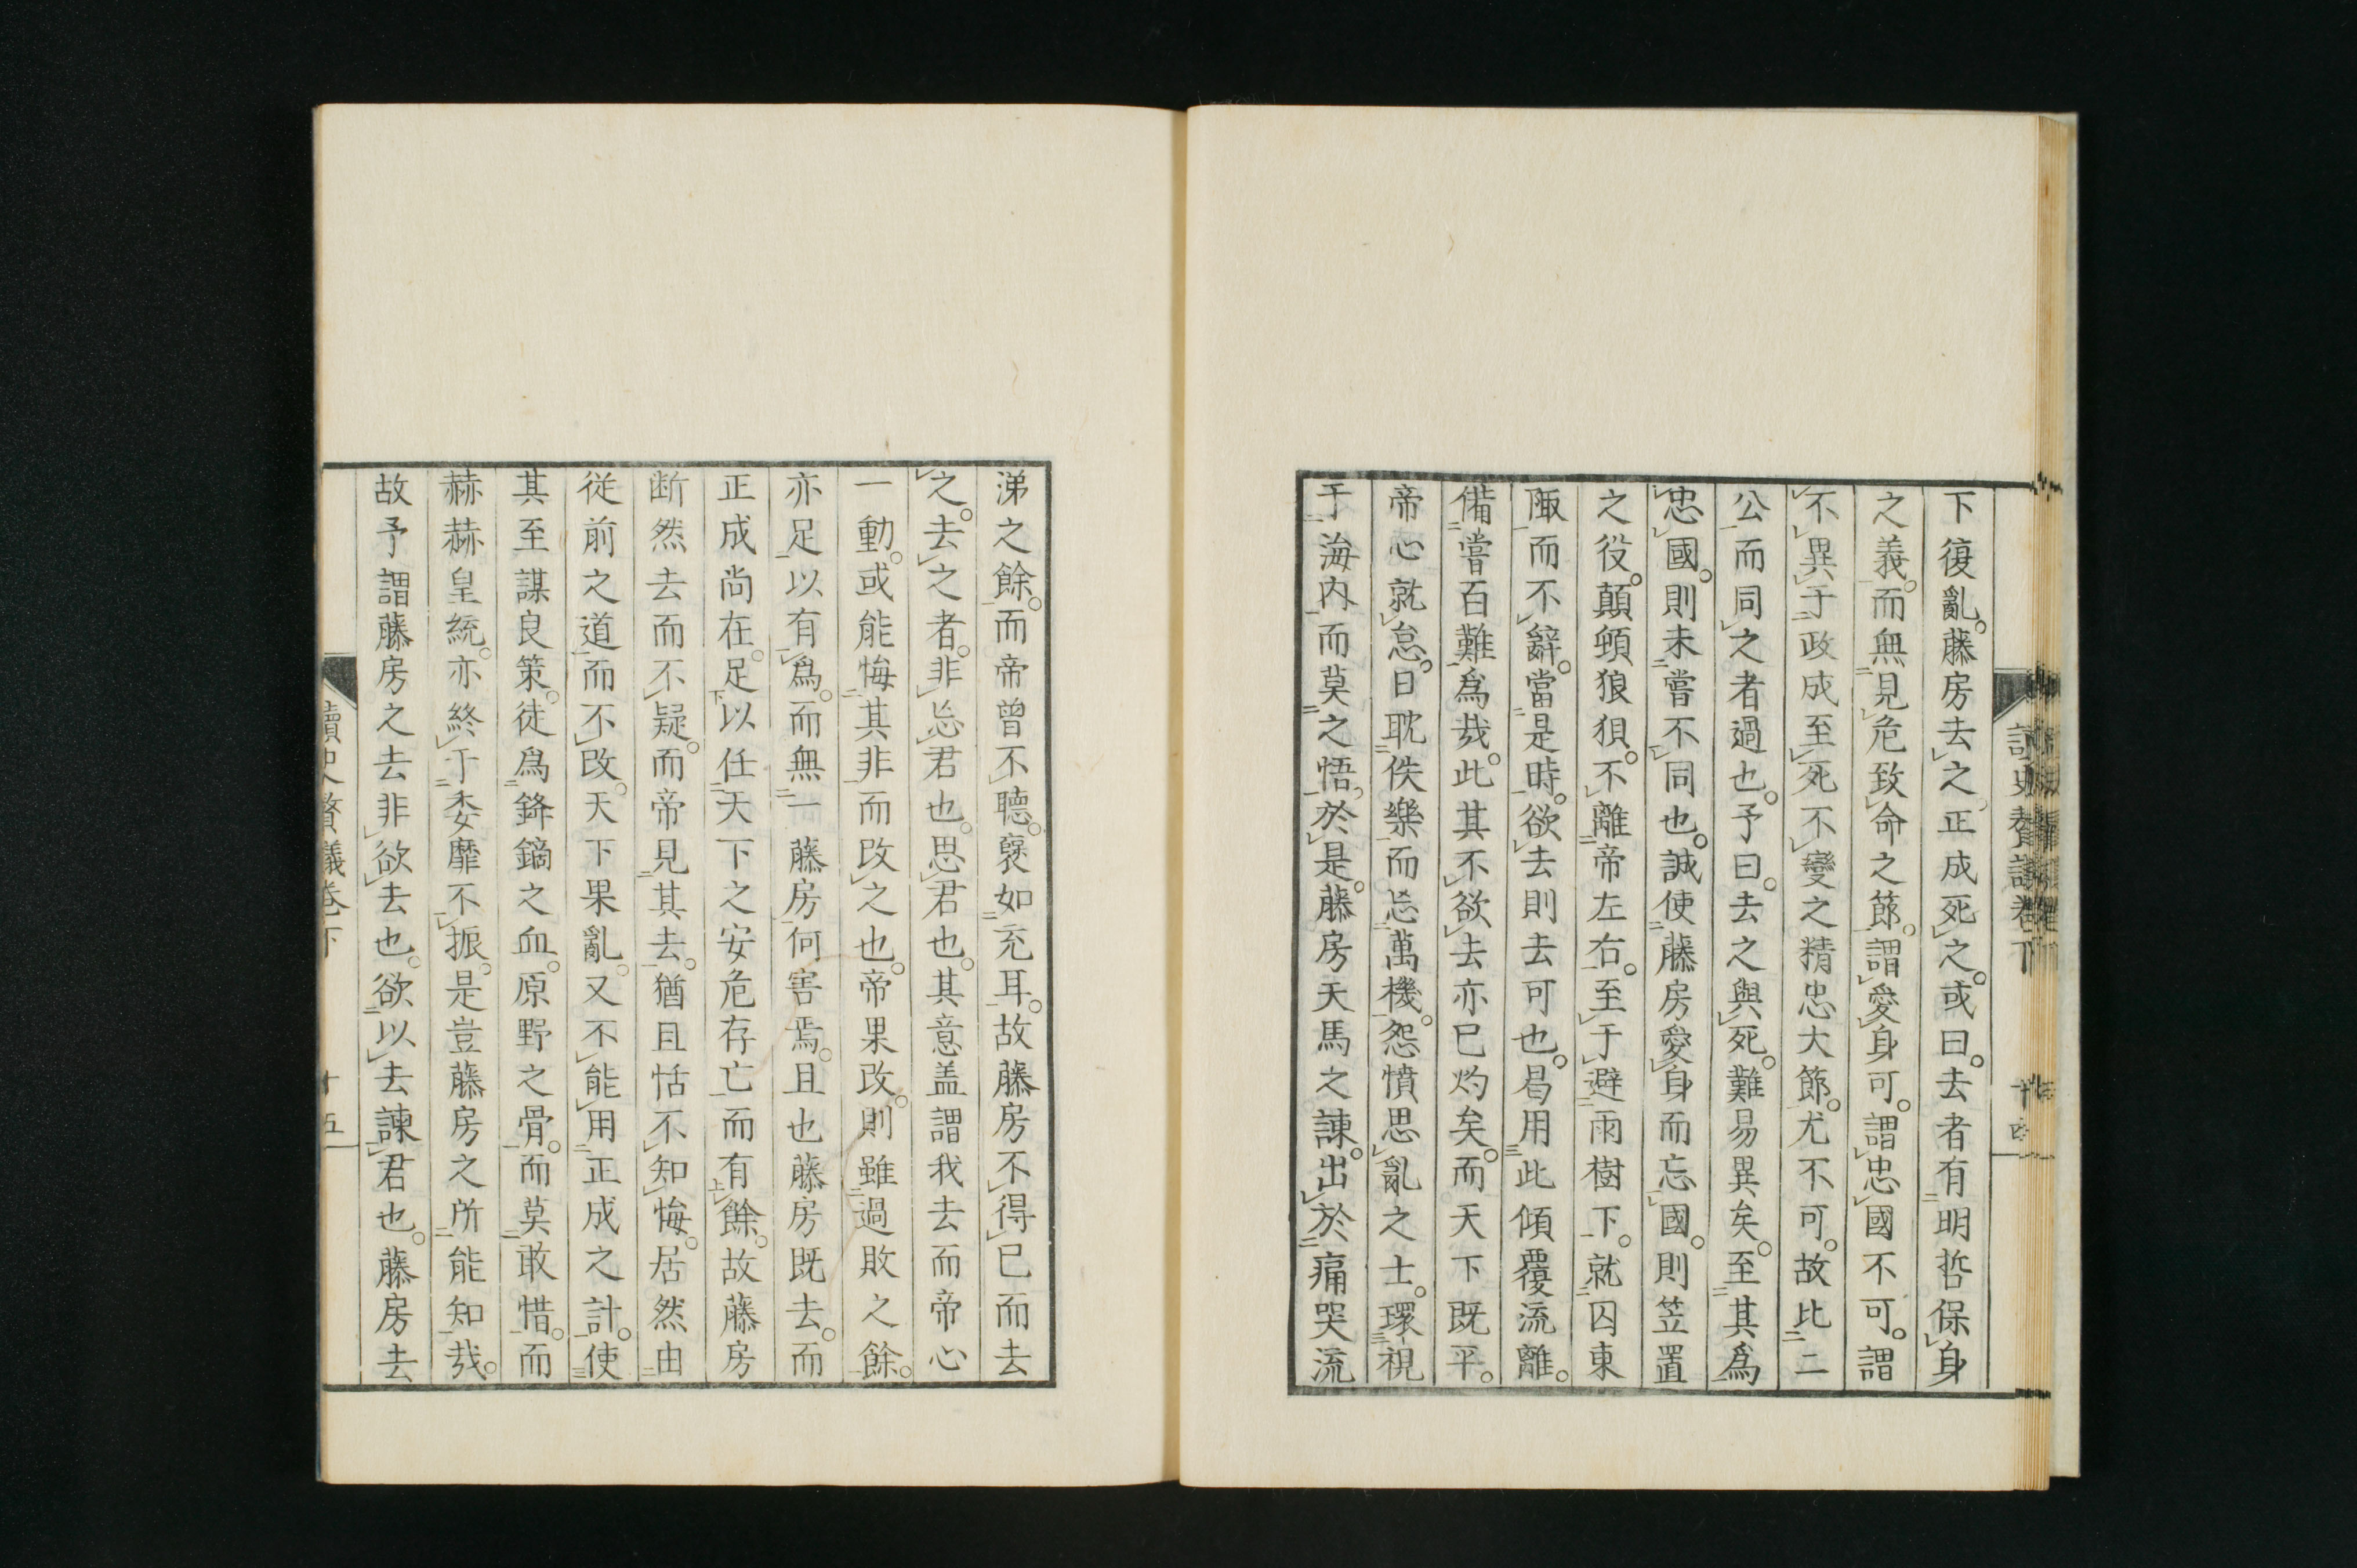 下復亂。藤房去之正成死之。或曰。去者有明哲保身
之義。而無見危致命之節。謂愛身可。謂忠國不可。謂
不異于政成至死不變之精忠大節。尤不可。故比二
公而同之者過也。予曰。去之與死。難易異矣。至其爲
忠國。則未嘗不同也。誠使藤房愛身而忘國。則笠置
之役。顛頓狼狽。不離帝左右。至于避雨樹下。就囚東
陬而不辭。當是時。欲去則去可也。曷用此傾覆流離。
備嘗百難爲哉。此其不欲去亦已灼矣。而天下既平。
帝心就怠。日耽佚樂而忘萬機。怨憤思亂之士。環視
于海内而莫之悟。於是。藤房天馬之諫。出於痛哭流
涕之餘。而帝曾不聽。褎如充耳。故藤房不得已而去
之。去之者。非忘君也。思君也。其意盖謂我去而帝心
一動。或能悔其非而改之也。帝果改。則雖過敗之餘。
亦足以有爲。而無一藤房何害焉。且也藤房既去。而
正成尚在。足以任天下之安危存亡而有餘。故藤房
断然去而不疑。而帝見其去。猶且恬不知悔。居然由
從前之道而不改。天下果亂。又不能用正成之計。使
其至謀良策。徒爲鋒鏑之血。原野之骨。而莫敢惜。而
赫赫皇統。亦終于委靡不振。是豈藤房之所能知哉。
故予謂藤房之去非欲去也。欲以去諫君也。藤房去
讀史贅議卷下
十五